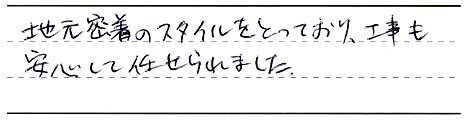 地元密着のスタイルをとっており、工事も
安心して任せられました。